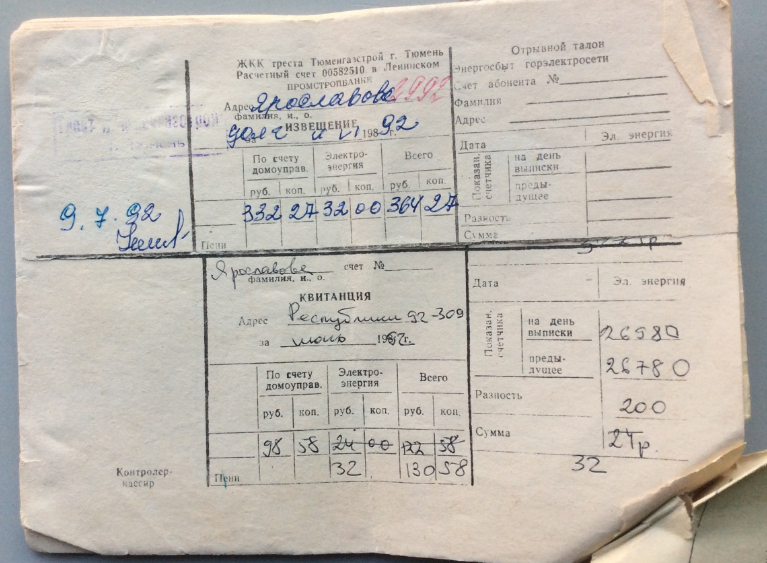 ЖКК треста Тюменгазстрой г. Тюмень
Расчетный счет 00582510 в Ленинском
ПРОМСТРОЙБАНКЕ
Адрес Ярославова 2992
фамилия, и., о.
ИЗВЕЩЕНИЕ
за долг и VI 1992
По счету домоуправ. Электро-энергия Всего
руб. коп. руб. коп. руб. коп.
332 27 32 00 364 27
Пени
9.7.92
Отрывной талон
Энергосбыт горэлектросети
Счет абонента №
Фамилия
Адрес
Дата Эл. энергия
Показан. счетчика
на день выписки
преды-дущее
Разность
Сумма
Ярославова счет №
фамилия, и., о.
КВИТАНЦИЯ
Адрес Республики 92-309
за июнь 1992г.
По счету домоуправ. Электро-энергия Всего
руб. коп. руб. коп. руб. коп.
98 58 24 00 122 58
32 130 58
Пени
Контролер-
кассир
Дата Эл. энергия
Показан. счетчика
на день выписки 26980
преды-дущее 26780
Разность 200
Сумма 24р.
32